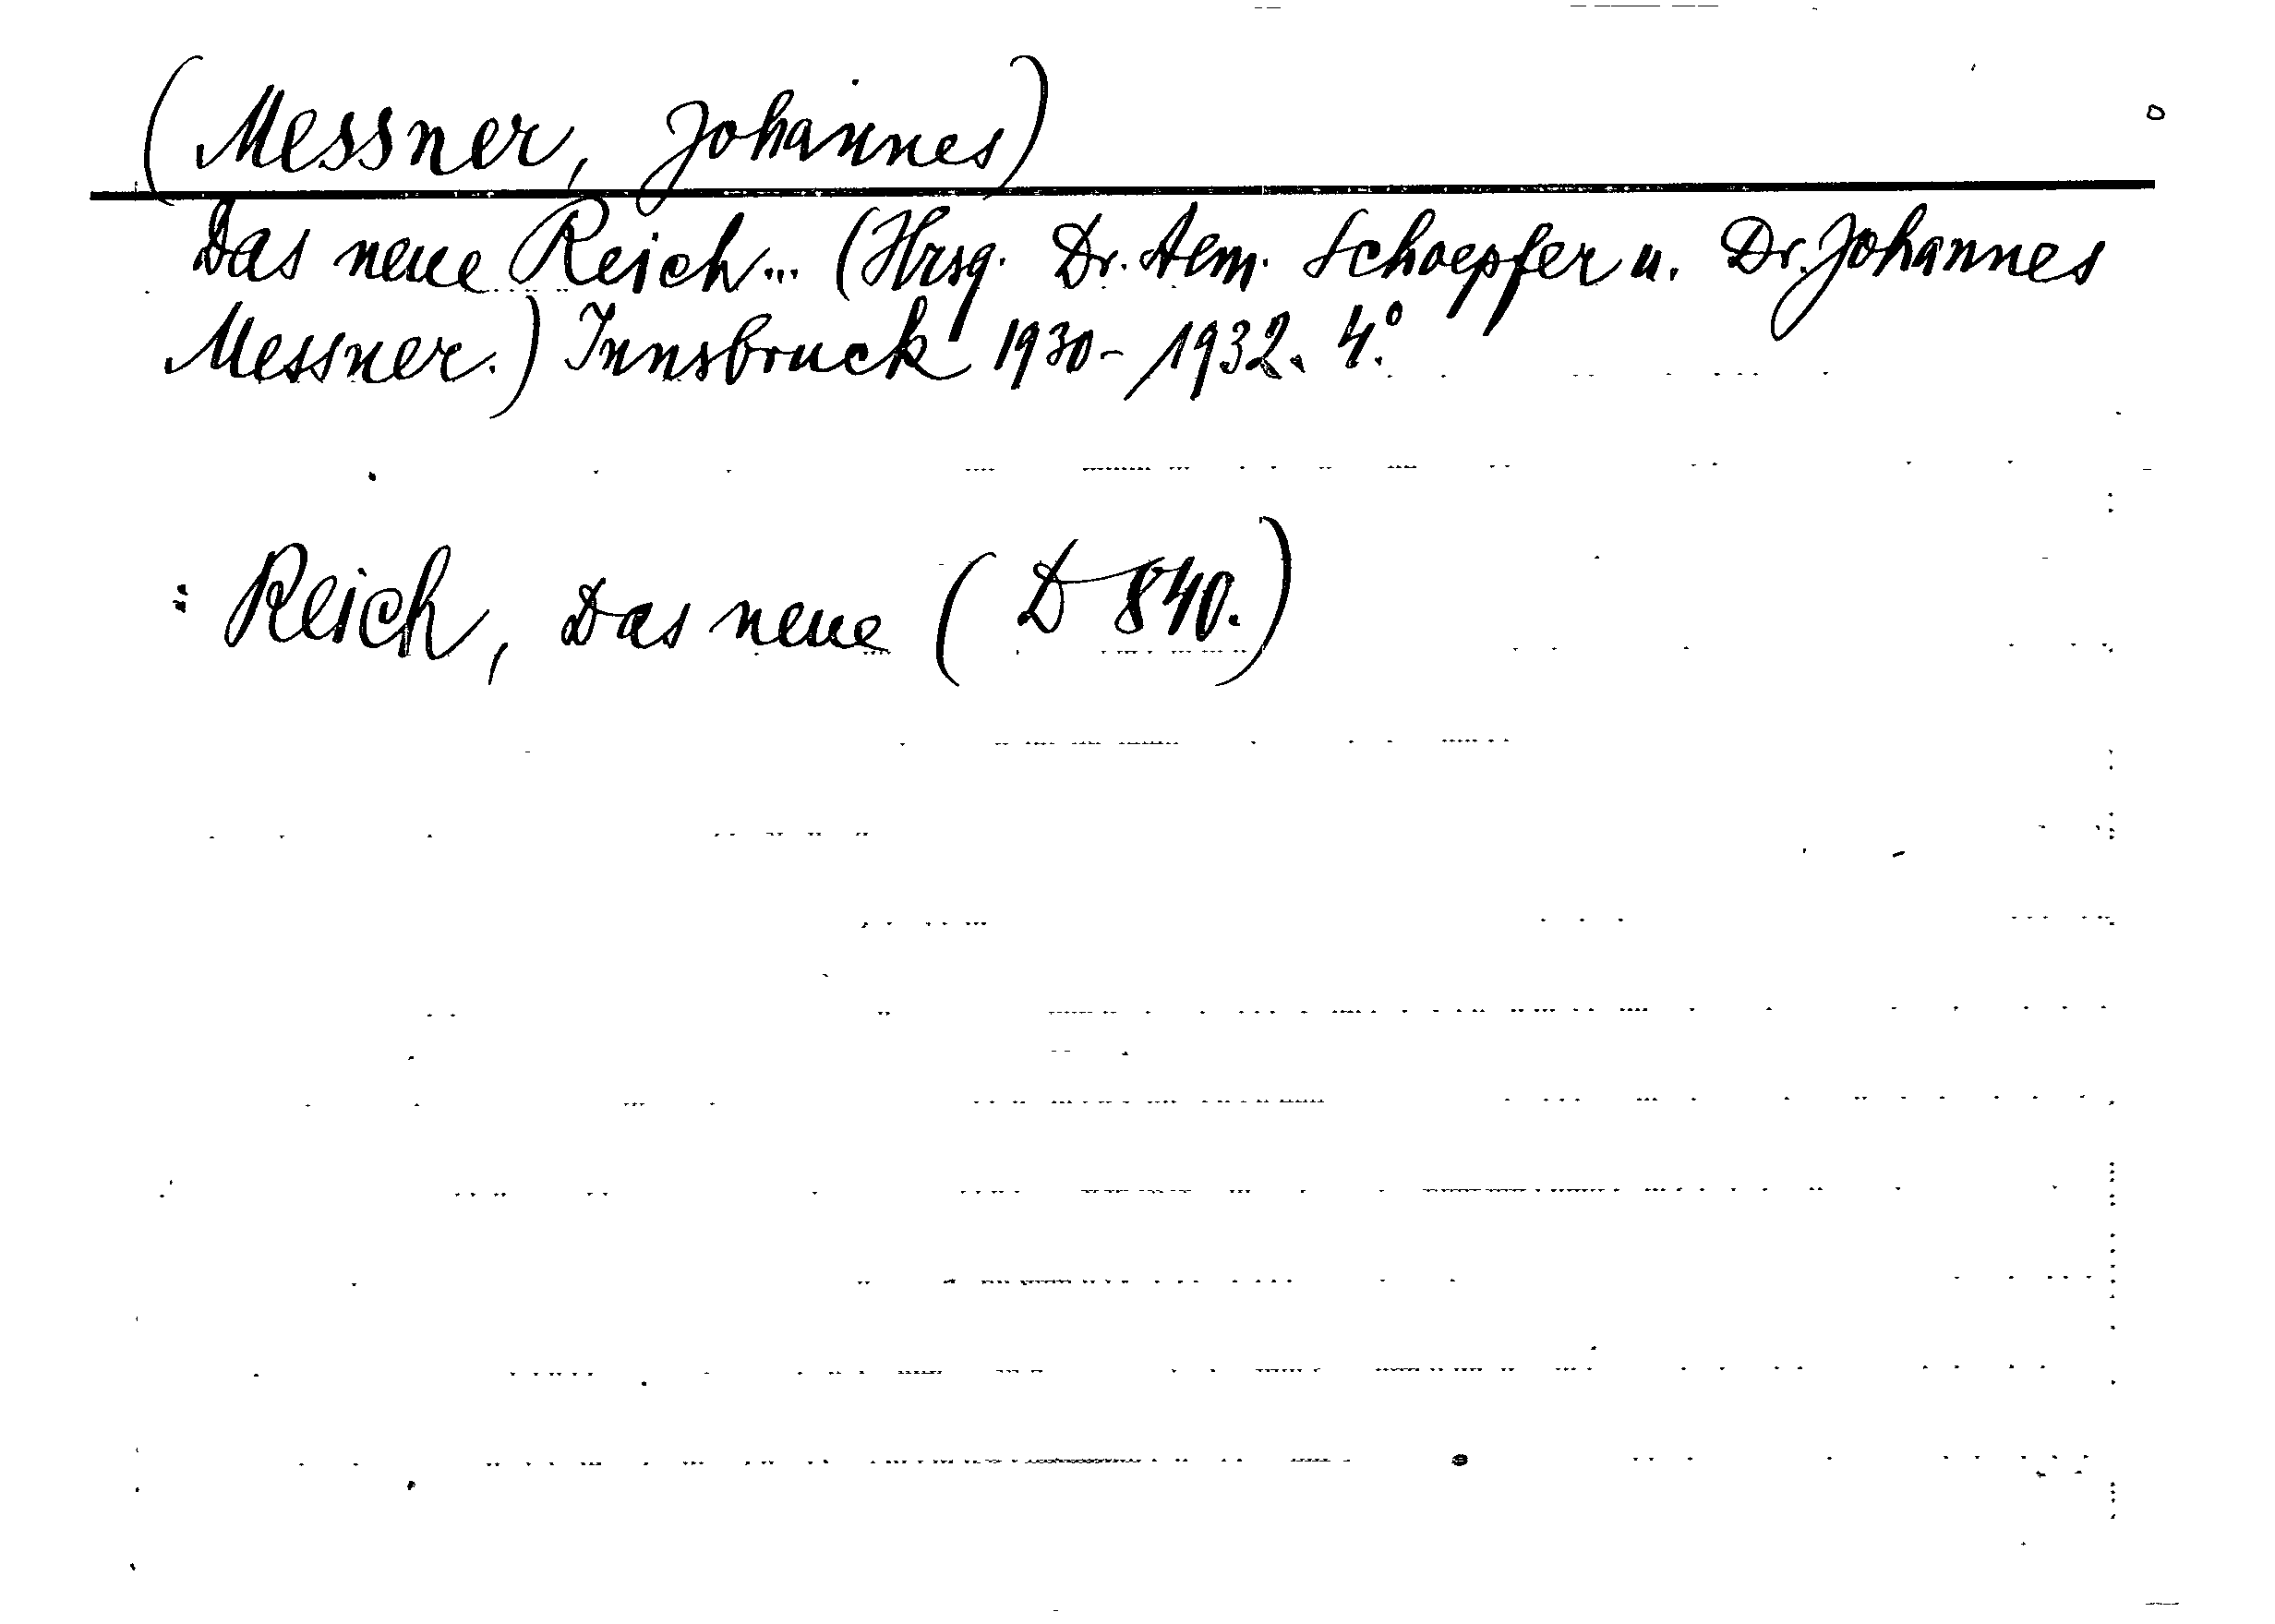 (Messner, Johannes)
Das neue Reich... (Hrsg. Dr. Aem. Schoepfer u. Dr. Johannes
Messner.) Innsbruck 1930-1932. 4.°
: Reich, Das neue (D 840.)